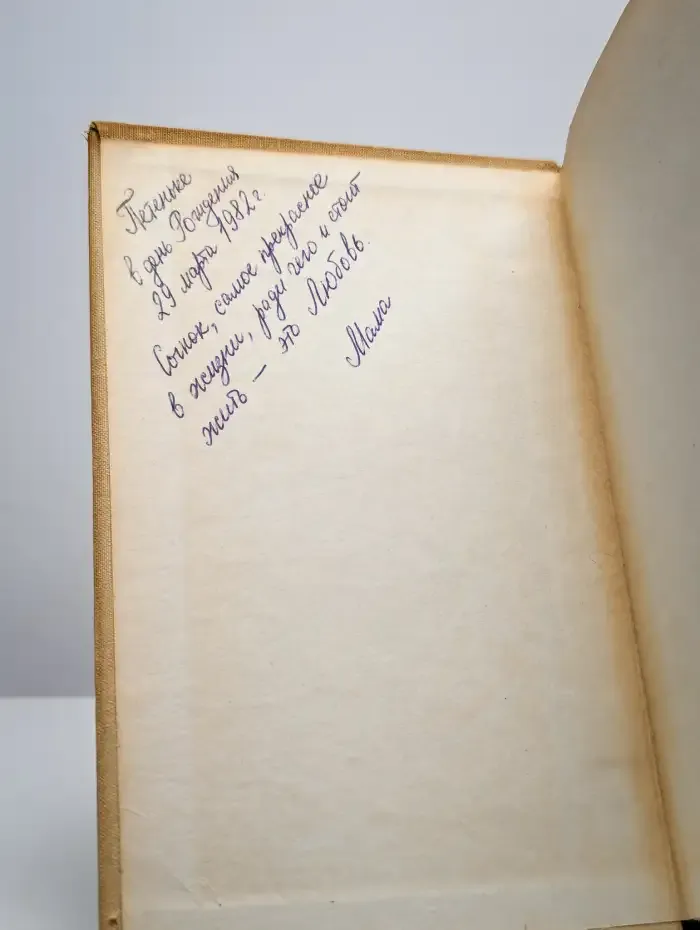 Петеньке
в день Рождения
29 марта 1982 г.
Сынок, самое прекрасное
в жизни, ради чего и стоит
жить – это Любовь.
Мама